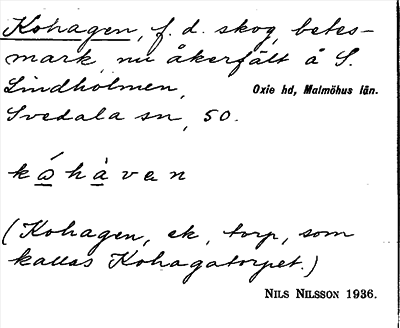 Kohagen, f. d. skog, betes-
mark, nu åkerfält å S.
Lindholmen, Oxie hd, Malmöhus län.
Svedala sn, 50.
kóhàven
(Kohagen, ek, torp, som
kallas Kohagatorpet.)
NILS NILSSON 1936.